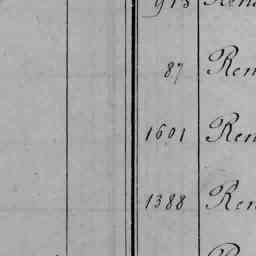 87 Ren
1601 Ren
1388 Ren